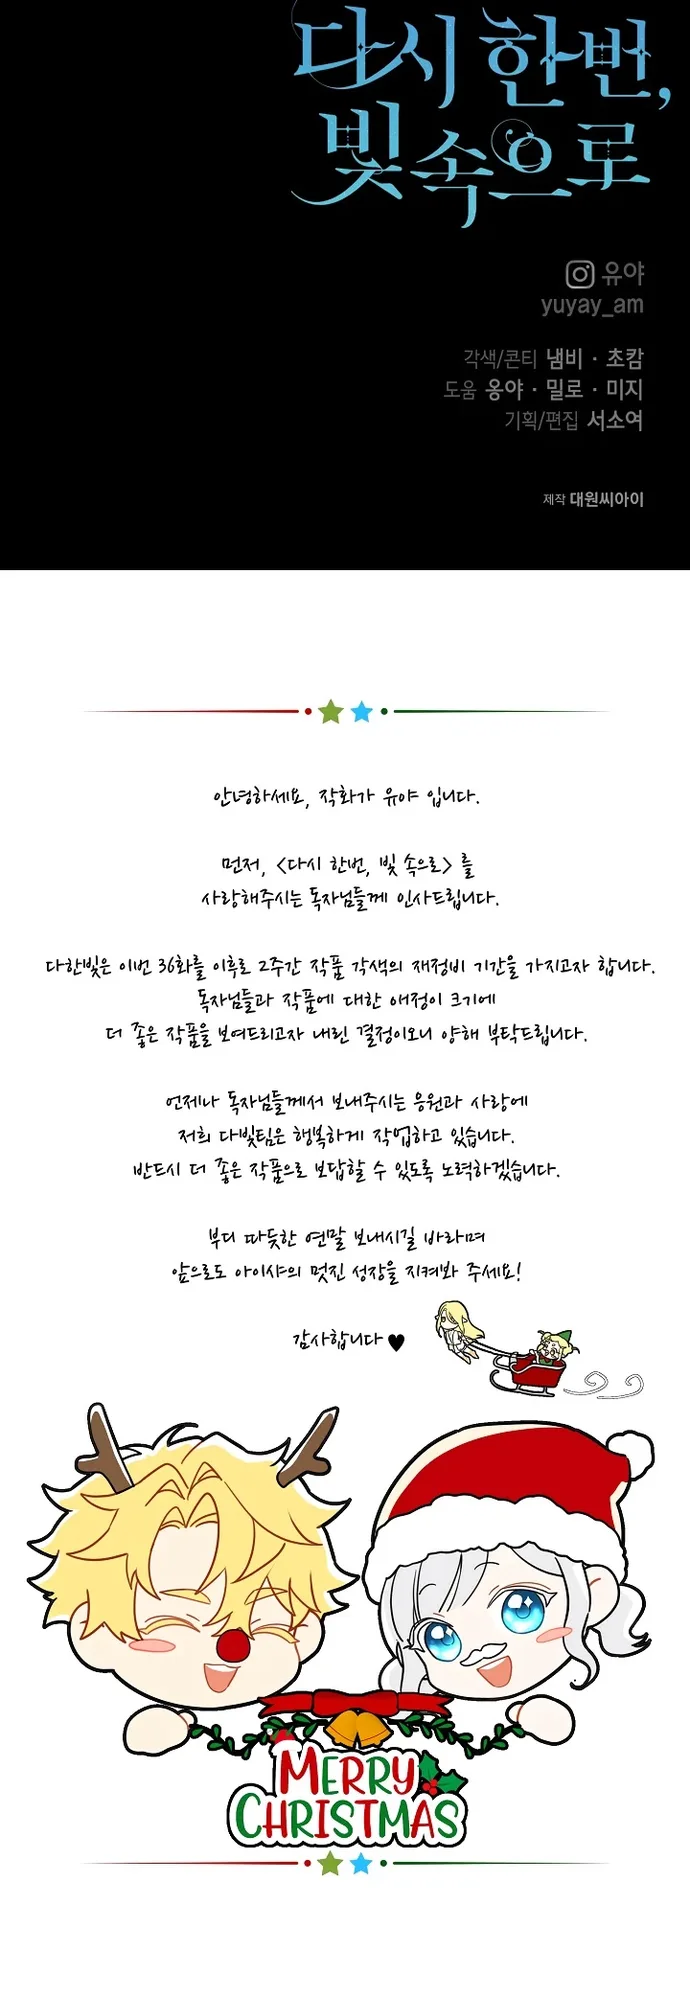 다시 한번,
빛 속으로
유야
yuyay_am
각색/콘티 냄비 · 초캄
도움 옹야 · 밀로 · 미지
기획/편집 서소여
제작 대원씨아이
안녕하세요, 작화가 유야 입니다.
먼저, <다시 한번, 빛 속으로> 를
사랑해주시는 독자님들께 인사드립니다.
다한빛은 이번 36화를 이후로 2주간 작품 각색의 재정비 기간을 가지고자 합니다.
독자님들과 작품에 대한 애정이 크기에
더 좋은 작품을 보여드리고자 내린 결정이오니 양해 부탁드립니다.
언제나 독자님들께서 보내주시는 응원과 사랑에
저희 다빛팀은 행복하게 작업하고 있습니다.
반드시 더 좋은 작품으로 보답할 수 있도록 노력하겠습니다.
부디 따듯한 연말 보내시길 바라며
앞으로도 아이샤의 멋진 성장을 지켜봐 주세요!
감사합니다 ♥
MERRY
CHRISTMAS